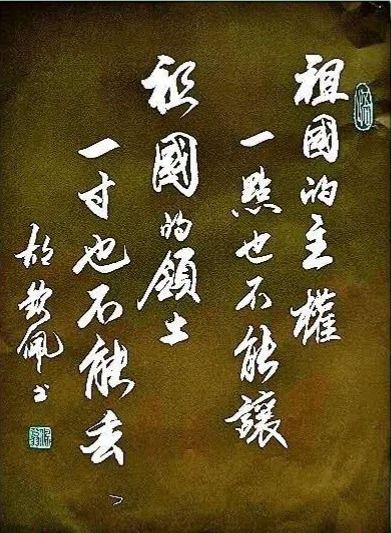 祖國的主權
一點也不能讓
祖國的領土
一寸也不能丟
佩书